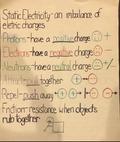 Static Electricity - an imbalance of
eletric charges
Protons - have a positive charge +
Electrons - have a negative charge -
Neutrons - have a neutral charge +/-
Attract - pull together + -
Repel - push away + + - -
Friction - resistance when objects
rub together